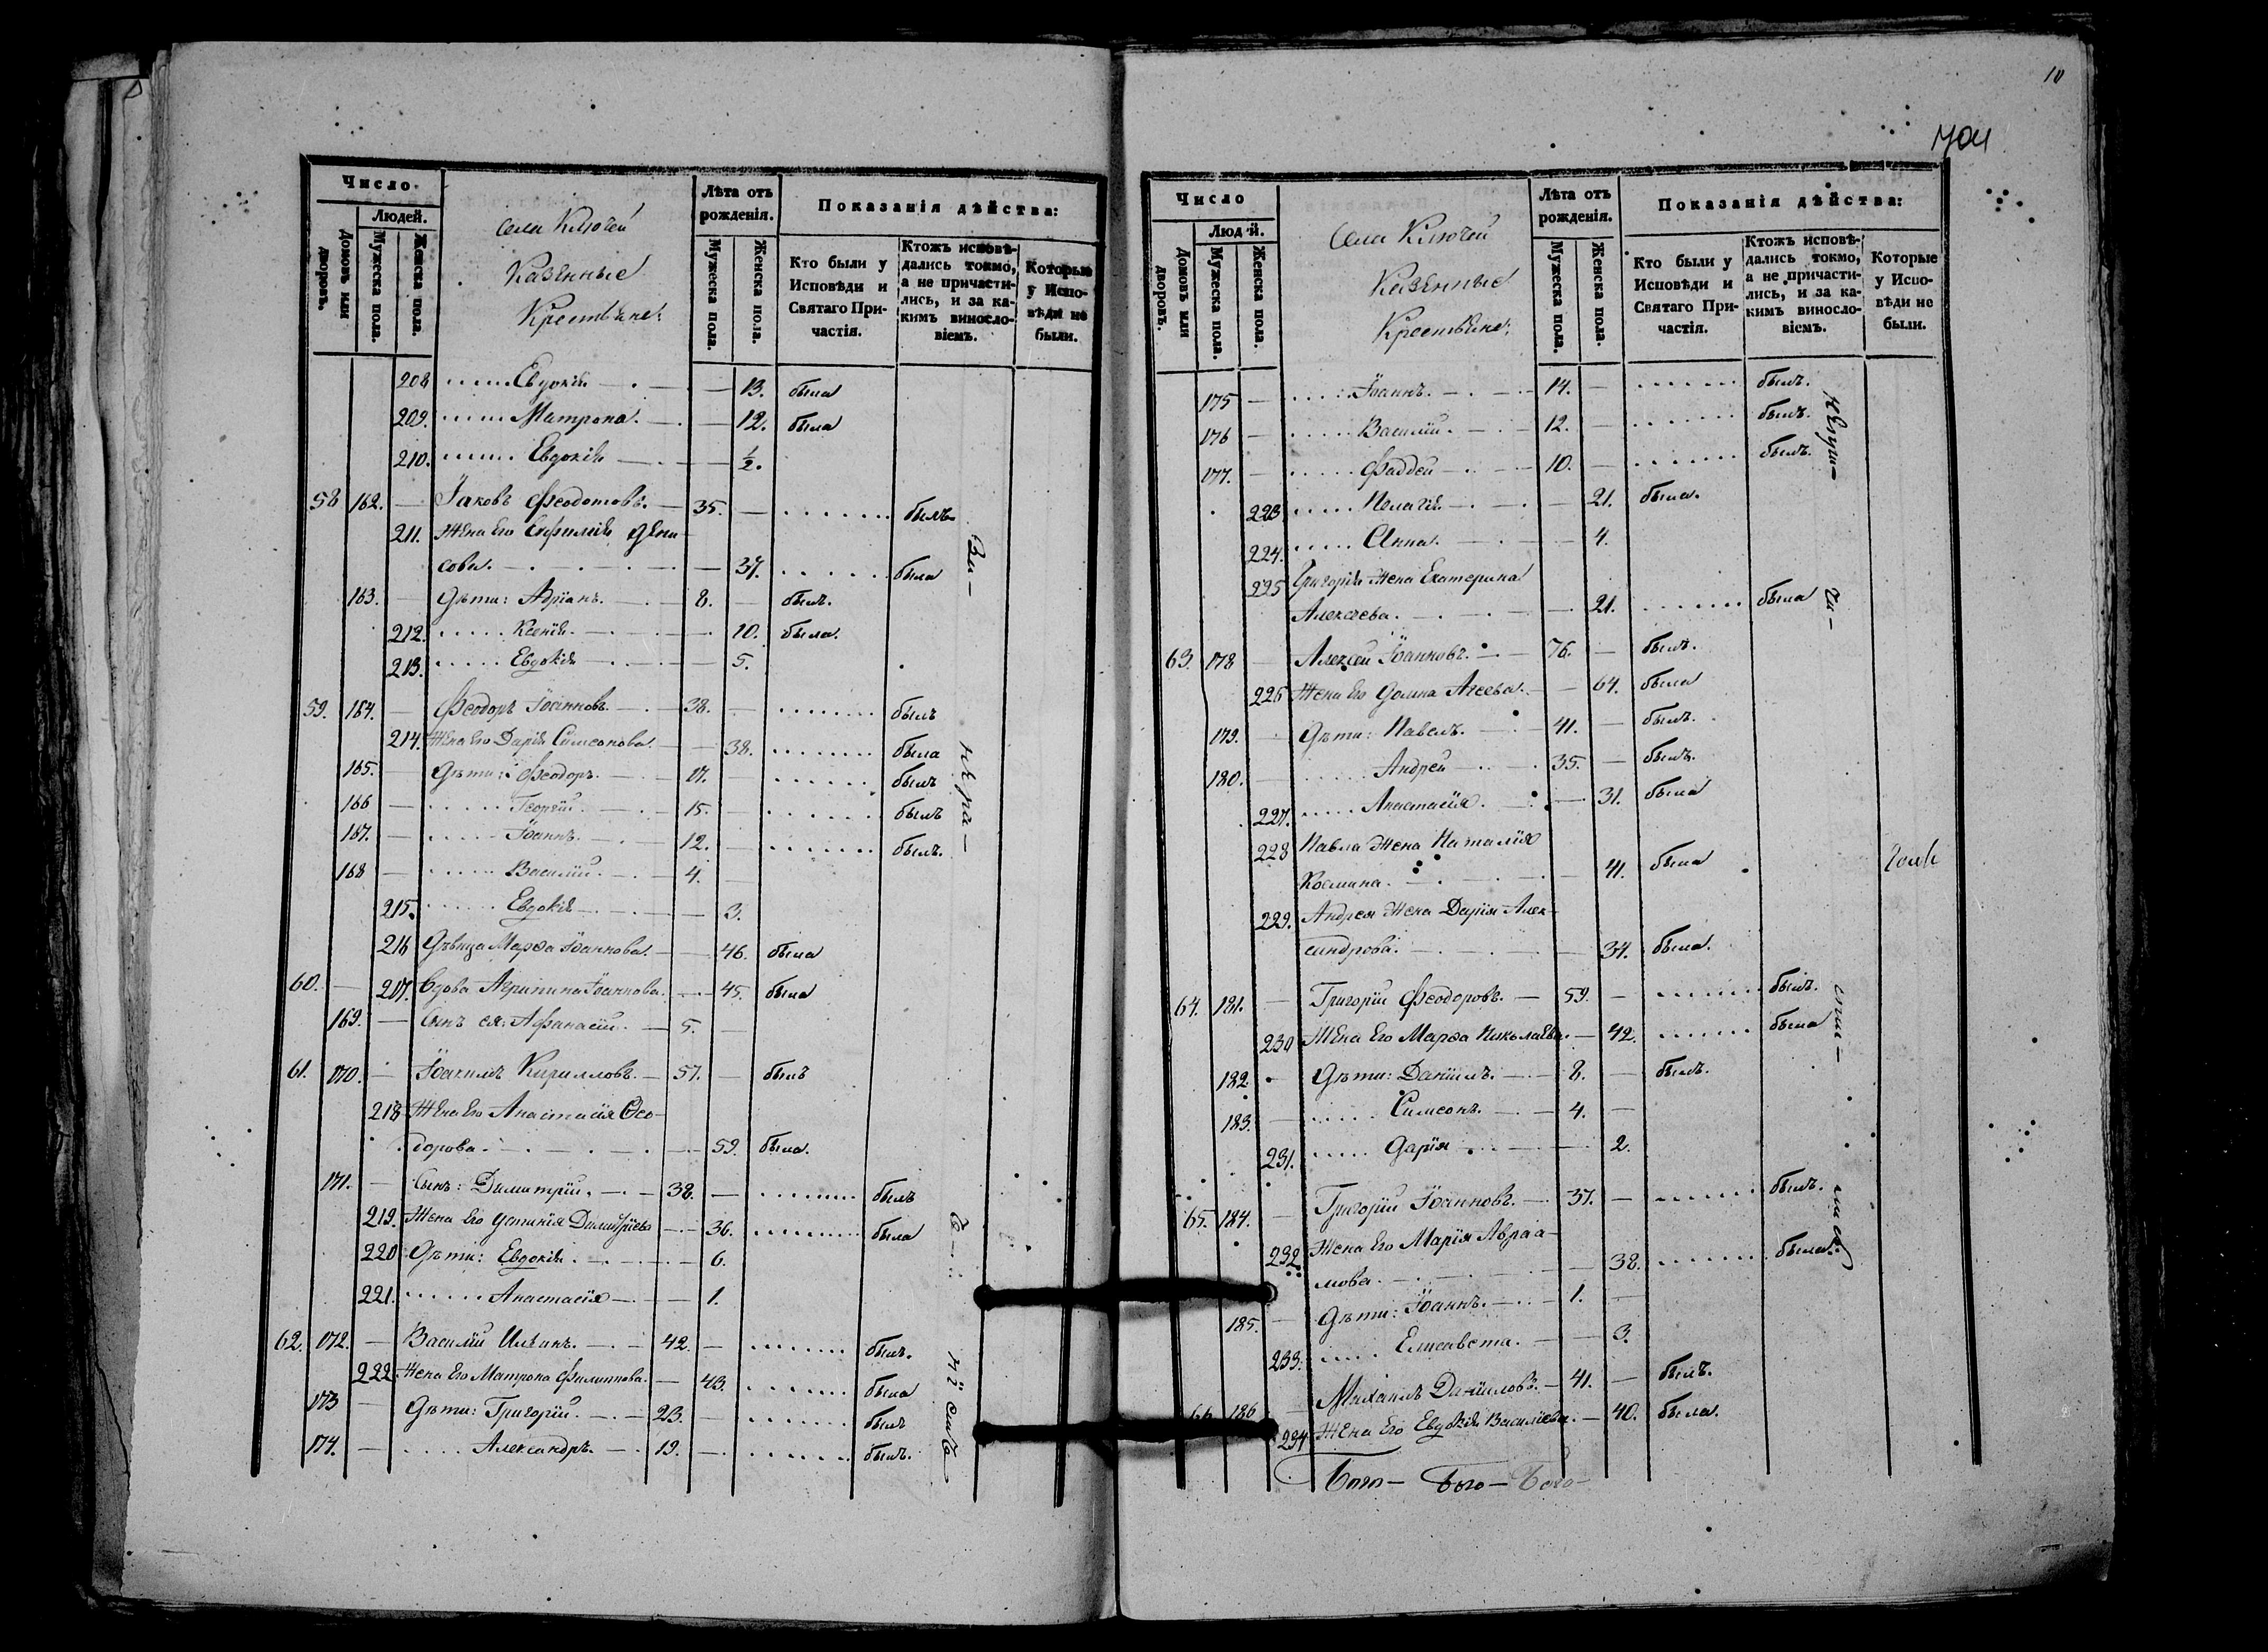 10
704
Число
Людей.
Домовъ или дворовъ.
Мужеска пола.
Женска пола.
Села Ключей
Казенные
Крестьяне:
Лѣта отъ рожденія.
Мужеска пола.
Женска пола.
Показанія дѣйства:
Кто были у Исповѣди и Святаго При-частія.
Ктожъ исповѣ-дались токмо, а не причасти-лись, и за ка-кимъ виносло-віемъ.
Которые у Испо-вѣди не были.
208 Евдокія — 13. была
209. Матрона. — 12. была
210. Евдокія — ½.
58 162. — Іаковъ Феодотовъ. — 35. — былъ
211. Жена Его Евфимія Дени-
сова. — 37. была
163. — Дѣти: Адріанъ. — 8. — былъ.
212. Ксенія. — 10. была.
213. Евдокія — 5.
59. 164. — Феодоръ Іоанновъ. — 38. — былъ
214. Жена Его Дарія Симеонова. — 38. была
165. — Дѣти: Феодоръ. — 17. былъ
166 — Георгій. — 15. — былъ
167. — Іоаннъ. — 12. — былъ.
168 — Василій. — 4. —
215. Евдокія — 3.
216 Дѣвица Марѳа Іоаннова. — 46. была
60. — 217. Вдова Агрипина Іоаннова. — 45. была
169. — Сынъ ея: Афанасій. — 5. —
61. 170. — Іоакимъ Кирилловъ. — 57. — былъ
218 Жена Его Анастасія Ѳео-
дорова. — 59. была.
171. — Сынъ: Димитрій. — 38. — былъ
219. Жена Его Устинія Димитріева — 36. была
220 Дѣти: Евдокія. — 6.
221. Анастасія — 1.
62. 172. — Василій Иліинъ. — 42. — былъ.
222. Жена Его Матрона Филиппова. — 43. была
173 — Дѣти: Григорій. — 23. — былъ
174. — Александръ. — 19. — былъ.
Число
Людей.
Домовъ или дворовъ.
Мужеска пола.
Женска пола.
Села Ключей
Казенные
Крестьяне:
Лѣта отъ рожденія.
Мужеска пола.
Женска пола.
Показанія дѣйства:
Кто были у Исповѣди и Святаго При-частія.
Ктожъ исповѣ-дались токмо, а не причасти-лись, и за ка-кимъ виносло-віемъ.
Которые у Испо-вѣди не были.
175 — Іоаннъ. — 14. — былъ.
176 — Василій. — 12. — былъ.
177. — Фаддей — 10. — былъ.
223 Пелагія — 21. была.
224. Анна. — 4.
225 Григорія Жена Екатерина
Алексѣева. — 21. была
63. 178 — Алексѣй Іоанновъ. — 76. — былъ.
226 Жена Его Домна Агеева. — 64. была
179. — Дѣти: Павелъ. — 41. — былъ.
180. — Андрей — 35. — былъ.
227. Анастасія. — 31. была
228 Павла Жена Наталія
Космина. — 41. была
229. Андрея Жена Дарія Алек-
сандрова. — 34. была.
64. 181. — Григорій Феодоровъ. — 59. — былъ.
230 Жена Его Марѳа Николаева. — 42. была
182. — Дѣти: Даніилъ. — 8. — былъ.
183. — Симеонъ. — 4. —
231. Дарія — 2.
65. 184. — Григорій Іоанновъ. — 37. — былъ.
232. Жена Его Марія Авраа-
мова. — 38. была.
185. — Дѣти: Іоаннъ. — 1. —
233. Елисавета. — 3.
66 186 Михаилъ Даниловъ. — 41. — былъ.
234 Жена Его Евдокія Василіева. — 40. была.